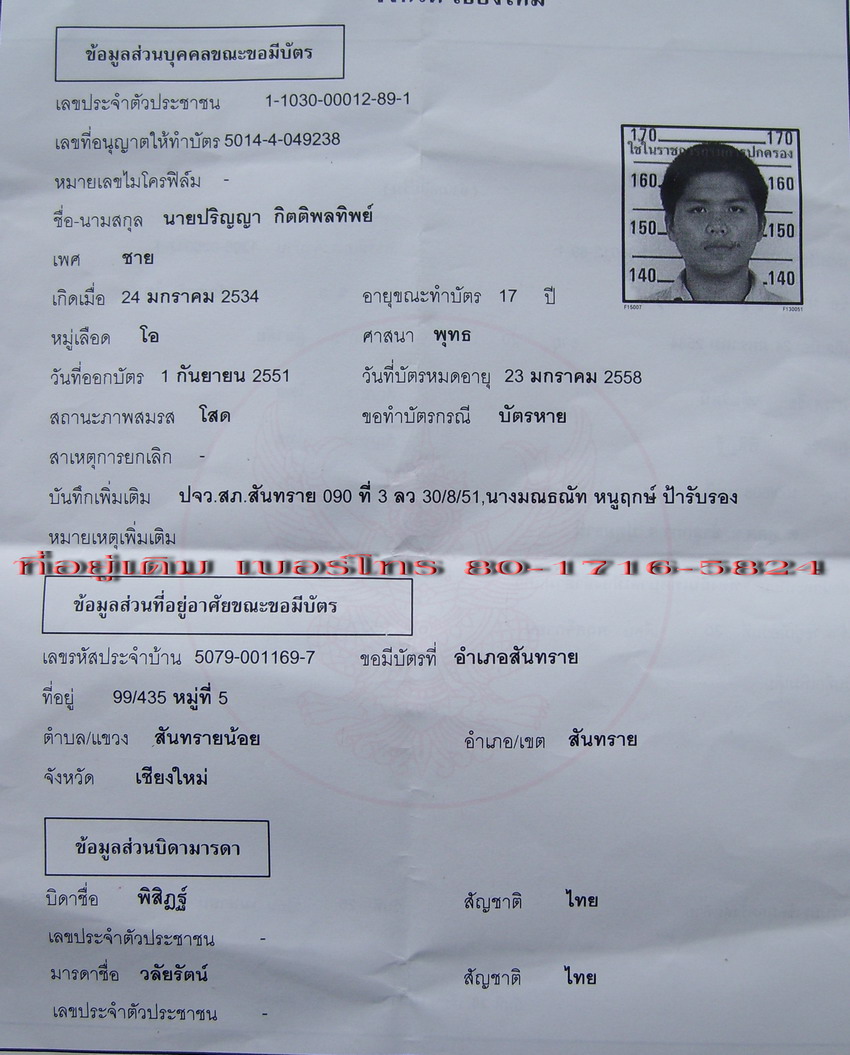 ข้อมูลส่วนบุคคลขณะขอมีบัตร
เลขประจำตัวประชาชน 1-1030-00012-89-1
เลขที่อนุญาตให้ทำบัตร 5014-4-049238
หมายเลขไมโครฟิล์ม -
ชื่อ-นามสกุล นายปริญญา กิตติพลทิพย์
เพศ ชาย
เกิดเมื่อ 24 มกราคม 2534 อายุขณะทำบัตร 17 ปี
หมู่เลือด โอ ศาสนา พุทธ
วันที่ออกบัตร 1 กันยายน 2551 วันที่บัตรหมดอายุ 23 มกราคม 2558
สถานะภาพสมรส โสด ขอทำบัตรกรณี บัตรหาย
สาเหตุการยกเลิก -
บันทึกเพิ่มเติม ปจว.สภ.สันทราย 090 ที่ 3 ลว 30/8/51,นางมณธณัท หนูฤกษ์ ป้ารับรอง
หมายเหตุเพิ่มเติม
170 170
160 160
150 150
140 140
F15007 F130051
ที่อยู่เดิม เบอร์โทร 80-1716-5824
ข้อมูลส่วนที่อยู่อาศัยขณะขอมีบัตร
เลขรหัสประจำบ้าน 5079-001169-7 ขอมีบัตรที่ อำเภอสันทราย
ที่อยู่ 99/435 หมู่ที่ 5
ตำบล/แขวง สันทรายน้อย อำเภอ/เขต สันทราย
จังหวัด เชียงใหม่
ข้อมูลส่วนบิดามารดา
บิดาชื่อ พิสิฎฐ์ สัญชาติ ไทย
เลขประจำตัวประชาชน -
มารดาชื่อ วลัยรัตน์ สัญชาติ ไทย
เลขประจำตัวประชาชน -